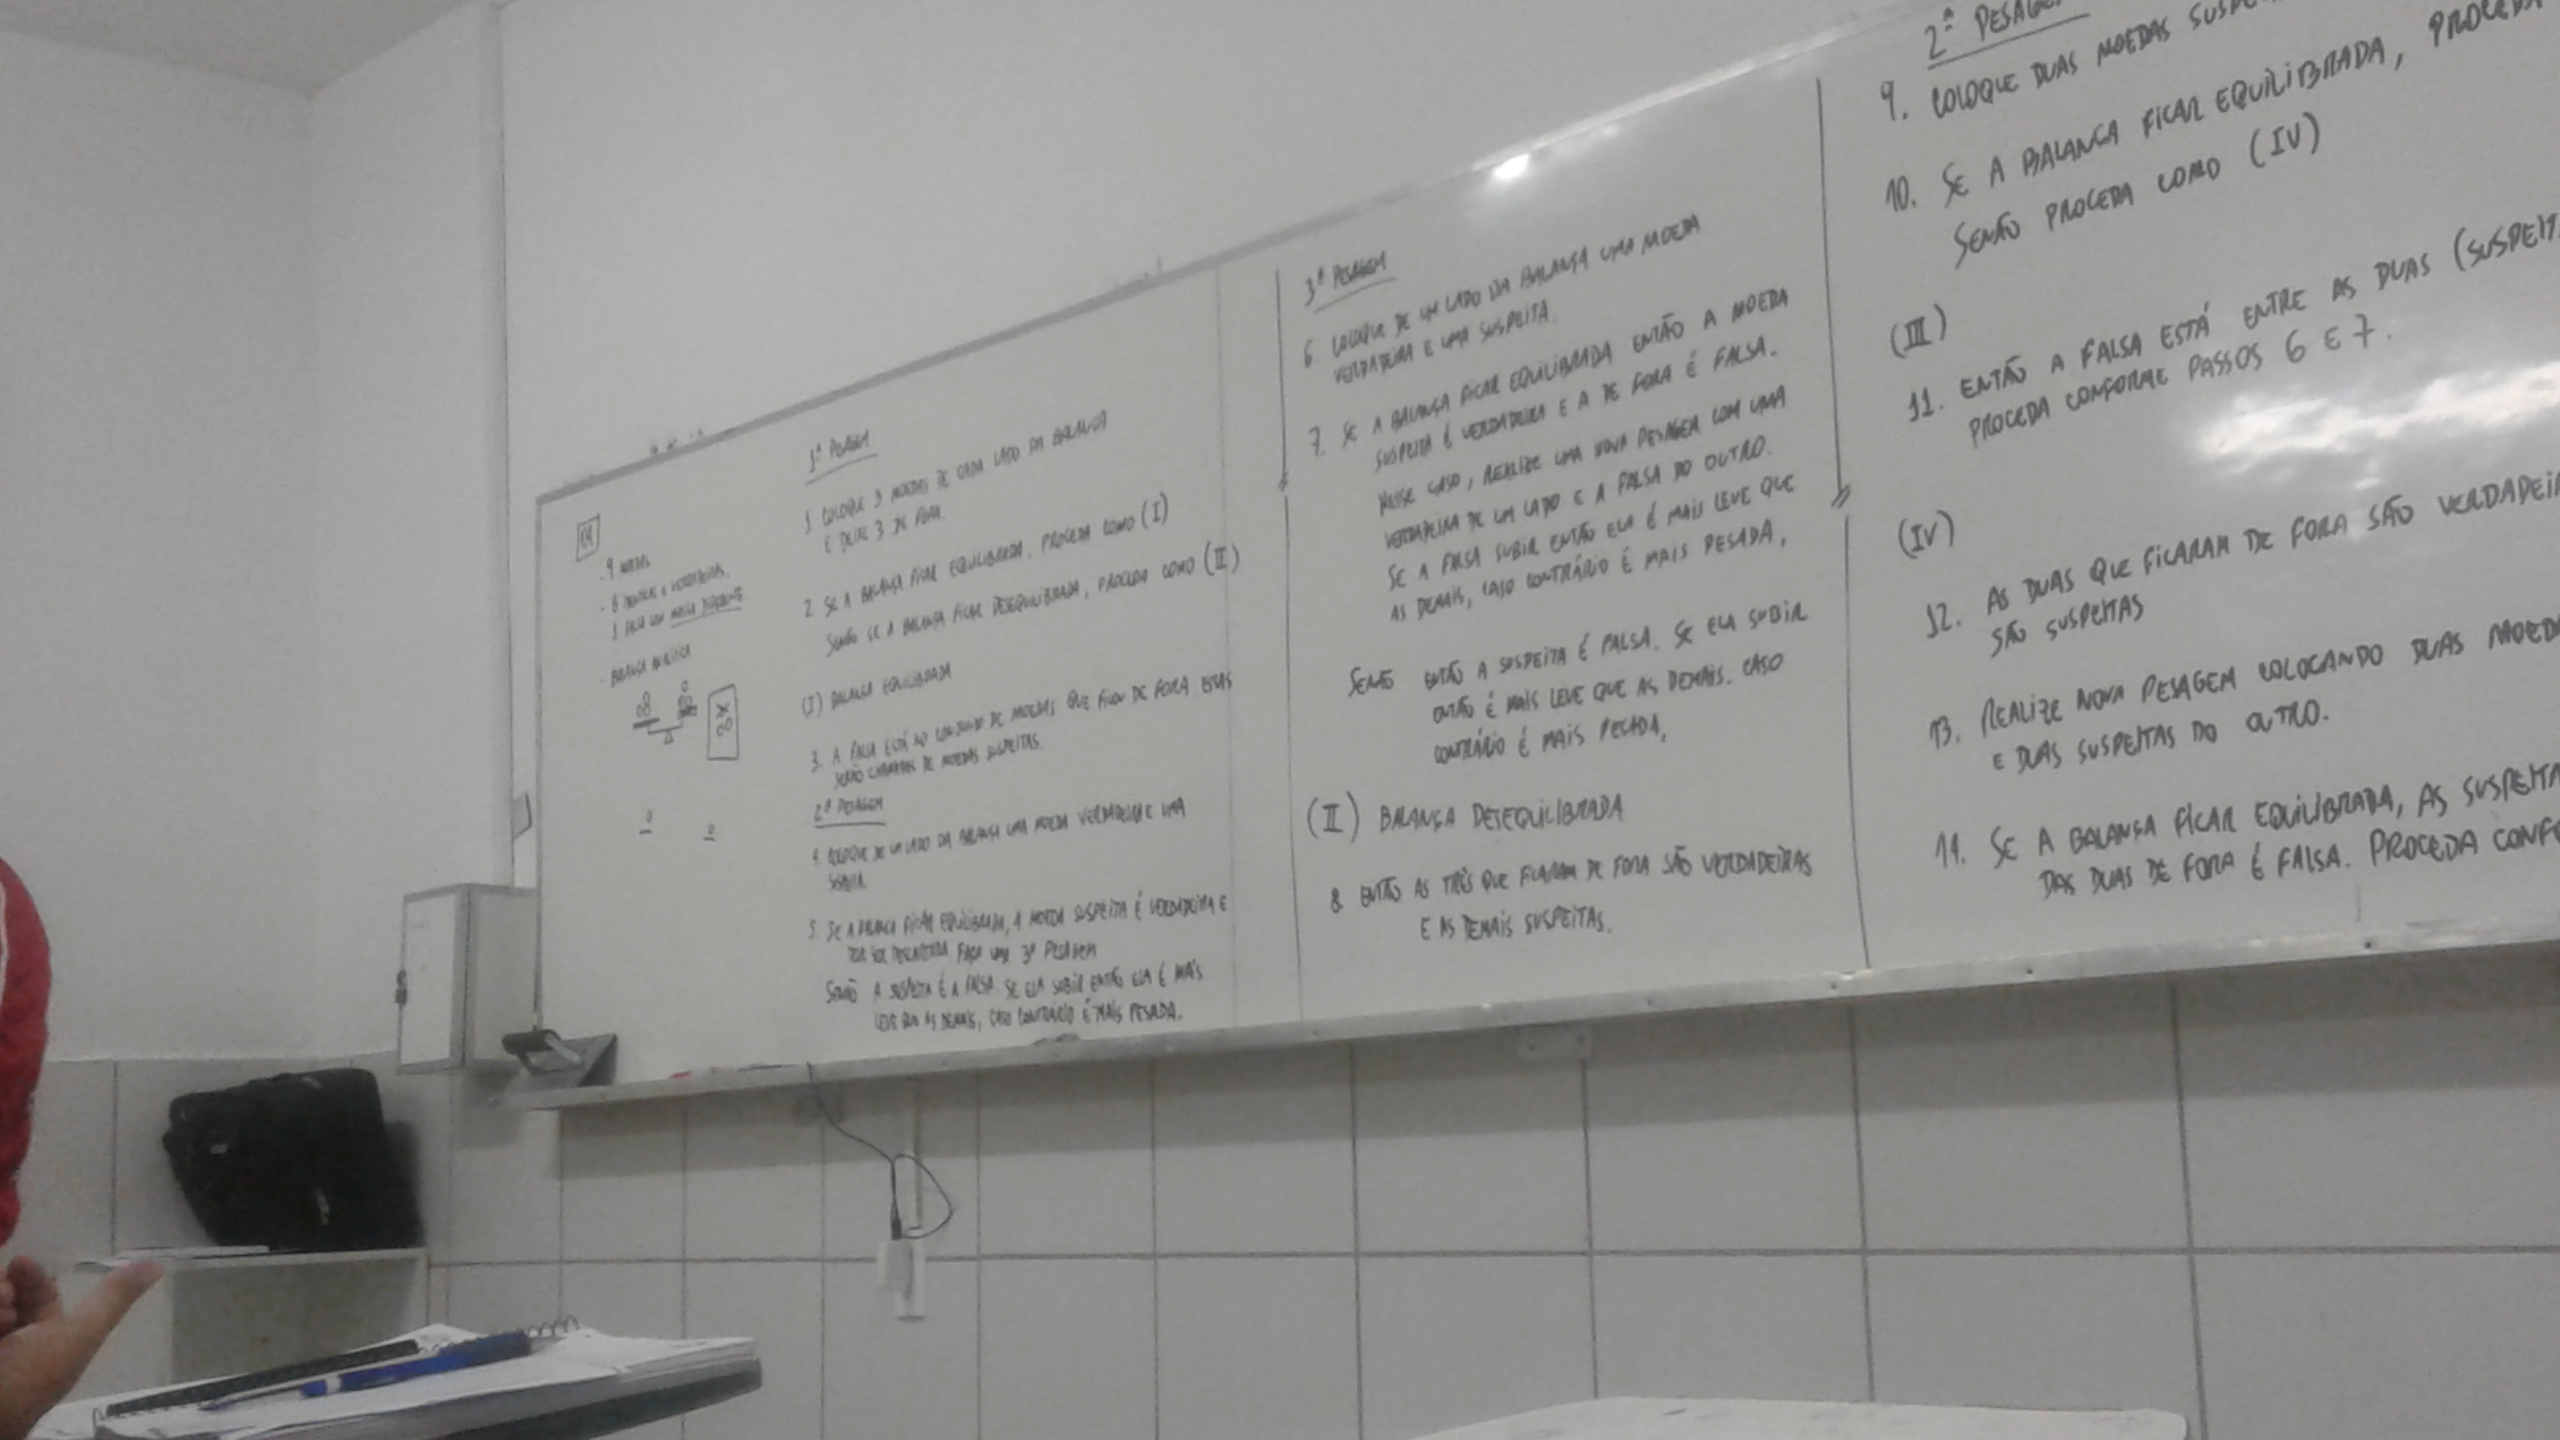 01
- 9 MOEDAS
- 8 IDÊNTICAS E VERDADEIRAS.
1 FALSA COM MASSA DIFERENTE
- BALANÇA ANALÍTICA
1ª PESAGEM
1. COLOQUE 3 MOEDAS DE CADA LADO DA BALANÇA
E DEIXE 3 DE FORA.
2. SE A BALANÇA FICAR EQUILIBRADA, PROCEDA COMO (I)
SENÃO SE A BALANÇA FICAR DESEQUILIBRADA, PROCEDA COMO (II)
(I) BALANÇA EQUILIBRADA
3. A FALSA ESTÁ NO CONJUNTO DE MOEDAS QUE FICOU DE FORA ESSAS
SERÃO CHAMADAS DE MOEDAS SUSPEITAS.
2ª PESAGEM
4. COLOQUE DE UM LADO DA BALANÇA UMA MOEDA VERDADEIRA E UMA
SUSPEITA.
5. SE A BALANÇA FICAR EQUILIBRADA, A MOEDA SUSPEITA É VERDADEIRA E
SER DESCARTADA FAÇA UMA 3ª PESAGEM
SENÃO A SUSPEITA É A FALSA. SE ELA SUBIR ENTÃO ELA É MAIS
LEVE QUE AS DEMAIS, CASO CONTRÁRIO É MAIS PESADA.
3ª PESAGEM
6. COLOQUE DE UM LADO DA BALANÇA UMA MOEDA
VERDADEIRA E UMA SUSPEITA.
7. SE A BALANÇA FICAR EQUILIBRADA ENTÃO A MOEDA
SUSPEITA É VERDADEIRA E A DE FORA É FALSA.
NESSE CASO, REALIZE UMA NOVA PESAGEM COM UMA
VERDADEIRA DE UM LADO E A FALSA DO OUTRO.
SE A FALSA SUBIR ENTÃO ELA É MAIS LEVE QUE
AS DEMAIS, CASO CONTRÁRIO É MAIS PESADA.
SENÃO ENTÃO A SUSPEITA É FALSA. SE ELA SUBIR
ENTÃO É MAIS LEVE QUE AS DEMAIS. CASO
CONTRÁRIO É MAIS PESADA.
(II) BALANÇA DESEQUILIBRADA
8 ENTÃO AS TRÊS QUE FICARAM DE FORA SÃO VERDADEIRAS
E AS DEMAIS SUSPEITAS.
2ª PESAGEM
9. COLOQUE DUAS MOEDAS
10. SE A BALANÇA FICAR EQUILIBRADA,
SENÃO PROCEDA COMO (IV)
(III)
11. ENTÃO A FALSA ESTÁ ENTRE AS DUAS
PROCEDA CONFORME PASSOS 6 E 7.
(IV)
12. AS DUAS QUE FICARAM DE FORA SÃO
SÃO SUSPEITAS
13. REALIZE NOVA PESAGEM COLOCANDO DUAS
E DUAS SUSPEITAS DO OUTRO.
14. SE A BALANÇA FICAR EQUILIBRADA, AS
DAS DUAS DE FORA É FALSA. PROCEDA